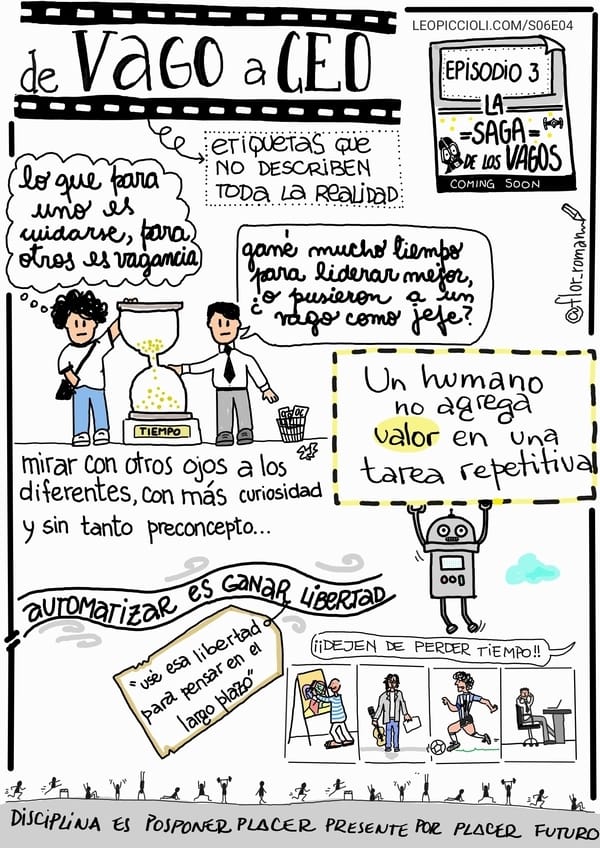 LEOPICCIOLI.COM/S06E04
de VAGO a CEO
EPISODIO 3
LA
=SAGA=
DE LOS VAGOS
COMING SOON
etiquetas que
NO DESCRIBEN
TODA LA REALIDAD
lo que para
uno es
cuidarse, para
otros es vagancia
gané mucho tiempo
para liderar mejor,
¿o pusieron a un
vago como jefe?
@flor.roman
TIEMPO
Un humano
no agrega
valor en una
tarea repetitiva
mirar con otros ojos a los
diferentes, con más curiosidad
y sin tanto preconcepto...
AUTOMATIZAR ES GANAR LIBERTAD
"usé esa libertad
para pensar en el
largo plazo"
¡¡DEJEN DE PERDER TIEMPO!!
DISCIPLINA ES POSPONER PLACER PRESENTE POR PLACER FUTURO